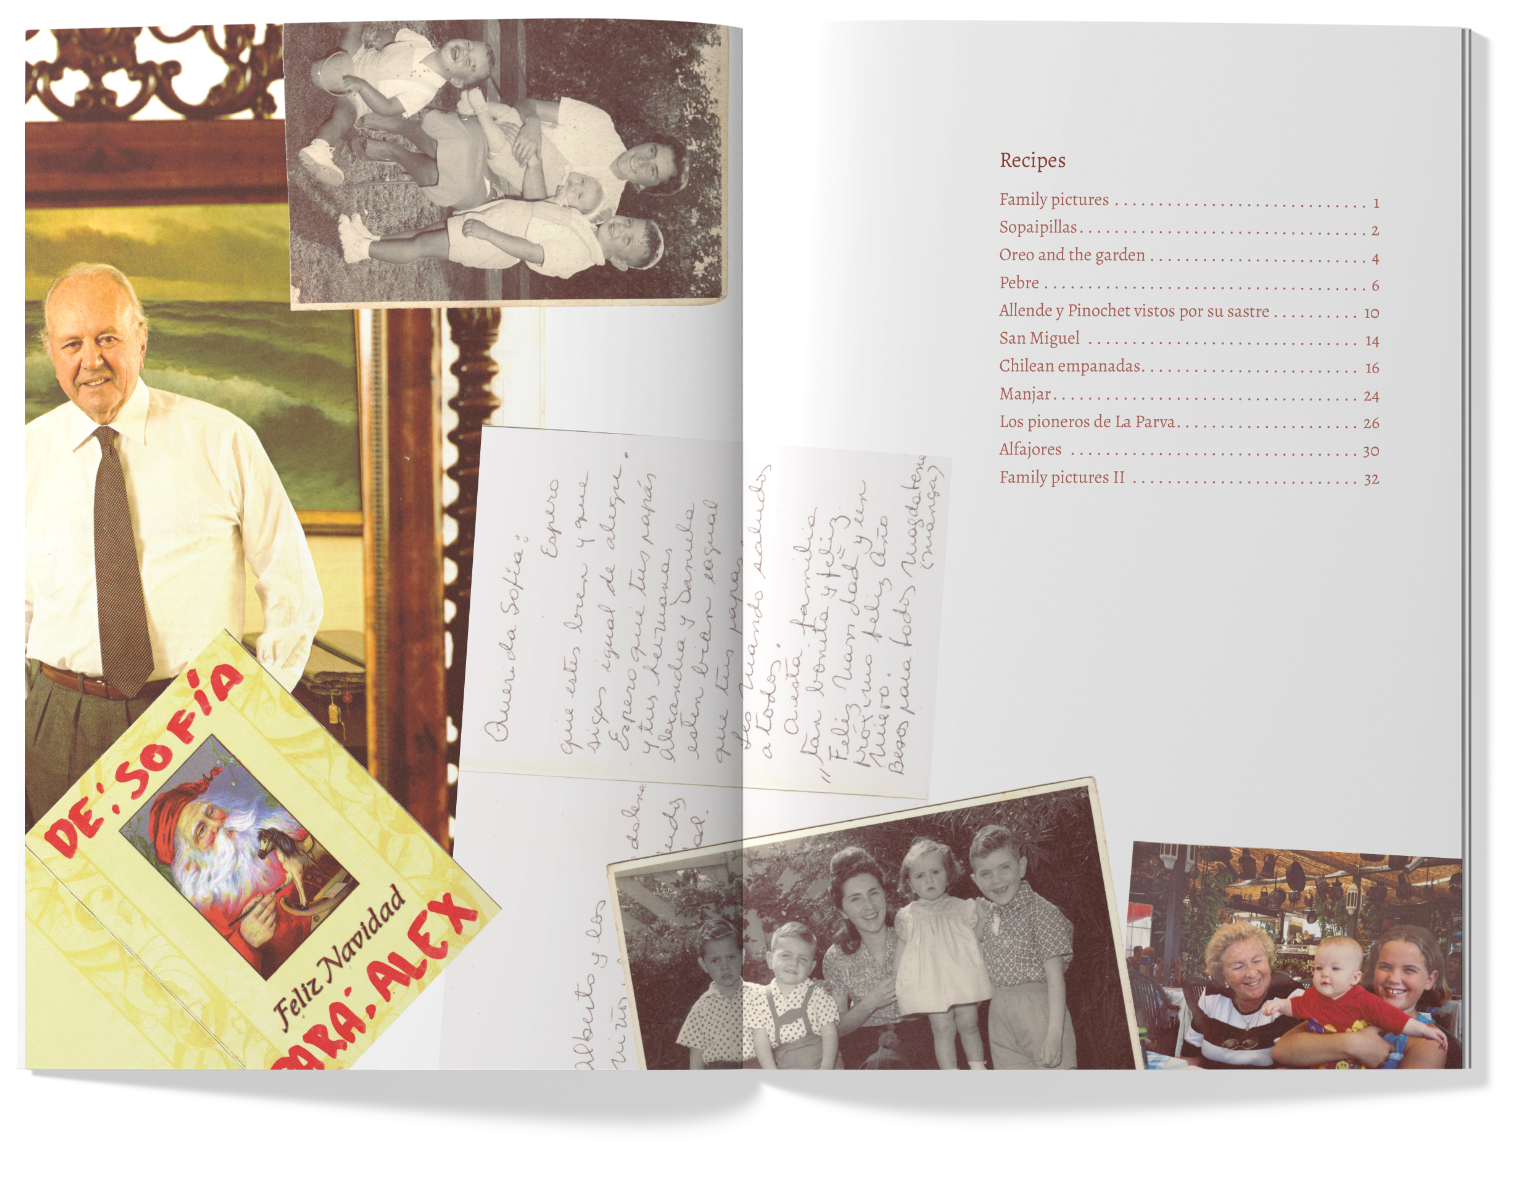 DE: SOFÍA
Feliz Navidad
PARA: ALEX
Querida Sofia:
Espero
que estes bien y que
sigas igual de alegre.
Espero que tus papás
y tus hermanas
Alexandra y Daniela
esten bién
que tus papás.
Les mando saludos
a todos.
A esta familia
"tan bonita y feliz
Feliz Navidad y un
próximo feliz Año
Nuevo.
Besos para todos Magdalena
Alberto y los
niños
Recipes
Family pictures . . . . . . . . . . . . . . . . . . . . . . . . . . . . . 1
Sopaipillas . . . . . . . . . . . . . . . . . . . . . . . . . . . . . . . . . 2
Oreo and the garden . . . . . . . . . . . . . . . . . . . . . . . . . 4
Pebre . . . . . . . . . . . . . . . . . . . . . . . . . . . . . . . . . . . . . 6
Allende y Pinochet vistos por su sastre . . . . . . . . . . 10
San Miguel . . . . . . . . . . . . . . . . . . . . . . . . . . . . . . . 14
Chilean empanadas. . . . . . . . . . . . . . . . . . . . . . . . . 16
Manjar . . . . . . . . . . . . . . . . . . . . . . . . . . . . . . . . . . . 24
Los pioneros de La Parva. . . . . . . . . . . . . . . . . . . . . 26
Alfajores . . . . . . . . . . . . . . . . . . . . . . . . . . . . . . . . . 30
Family pictures II . . . . . . . . . . . . . . . . . . . . . . . . . . 32